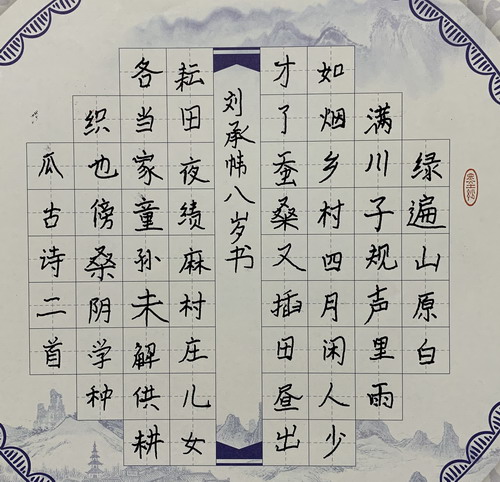 绿遍山原白
满川子规声里雨
如烟乡村四月闲人少
才了蚕桑又插田昼出
刘承帏八岁书
耘田夜绩麻村庄儿女
各当家童孙未解供耕
织也傍桑阴学种
瓜古诗二首